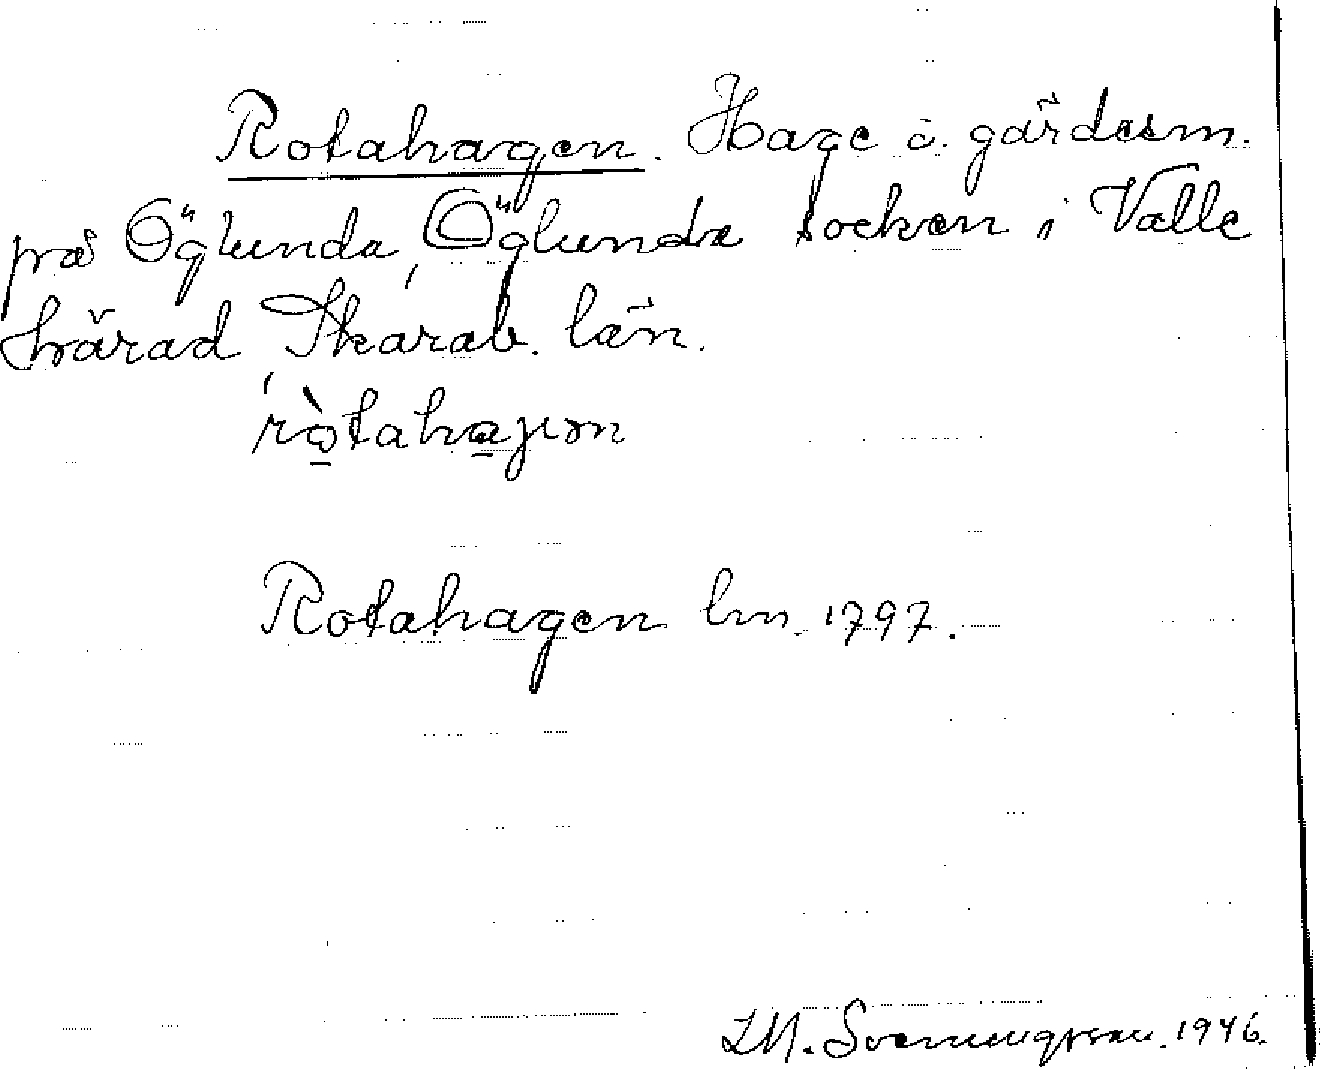 Rotahagen. Hage o. gärdesm.
på Öglunda, Öglunda socken i Valle
härad, Skarab. län.
ròtahajən
Rotahagen lm. 1797.
LM. Svenungsson. 1946.